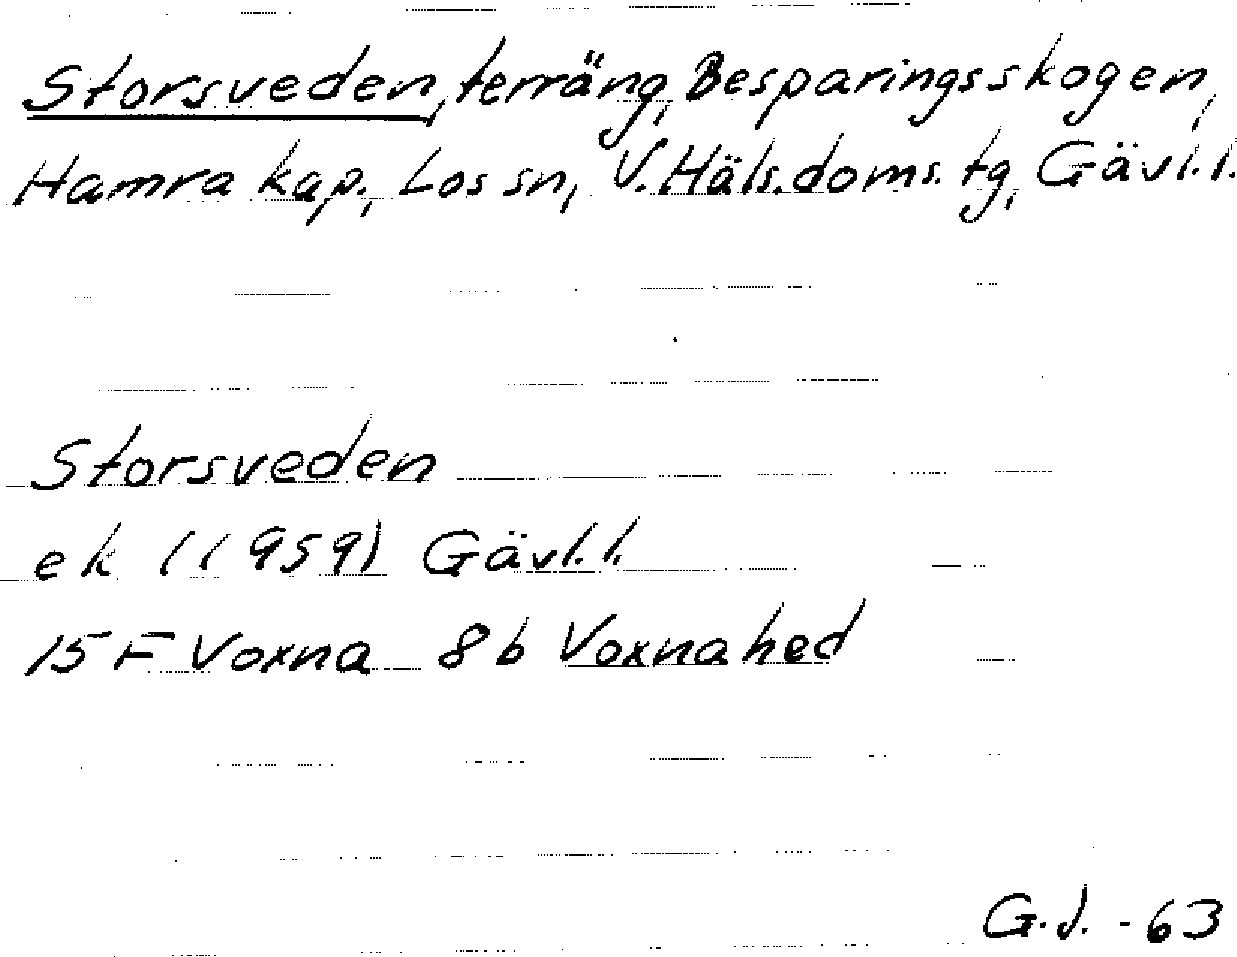 Storsveden, terräng, Besparingsskogen,
Hamra kap., Los sn, V. Häls. doms. tg, Gävl. l.
Storsveden
ek (1959) Gävl. l.
15 F Voxna 8 b Voxnahed
G.J. -63